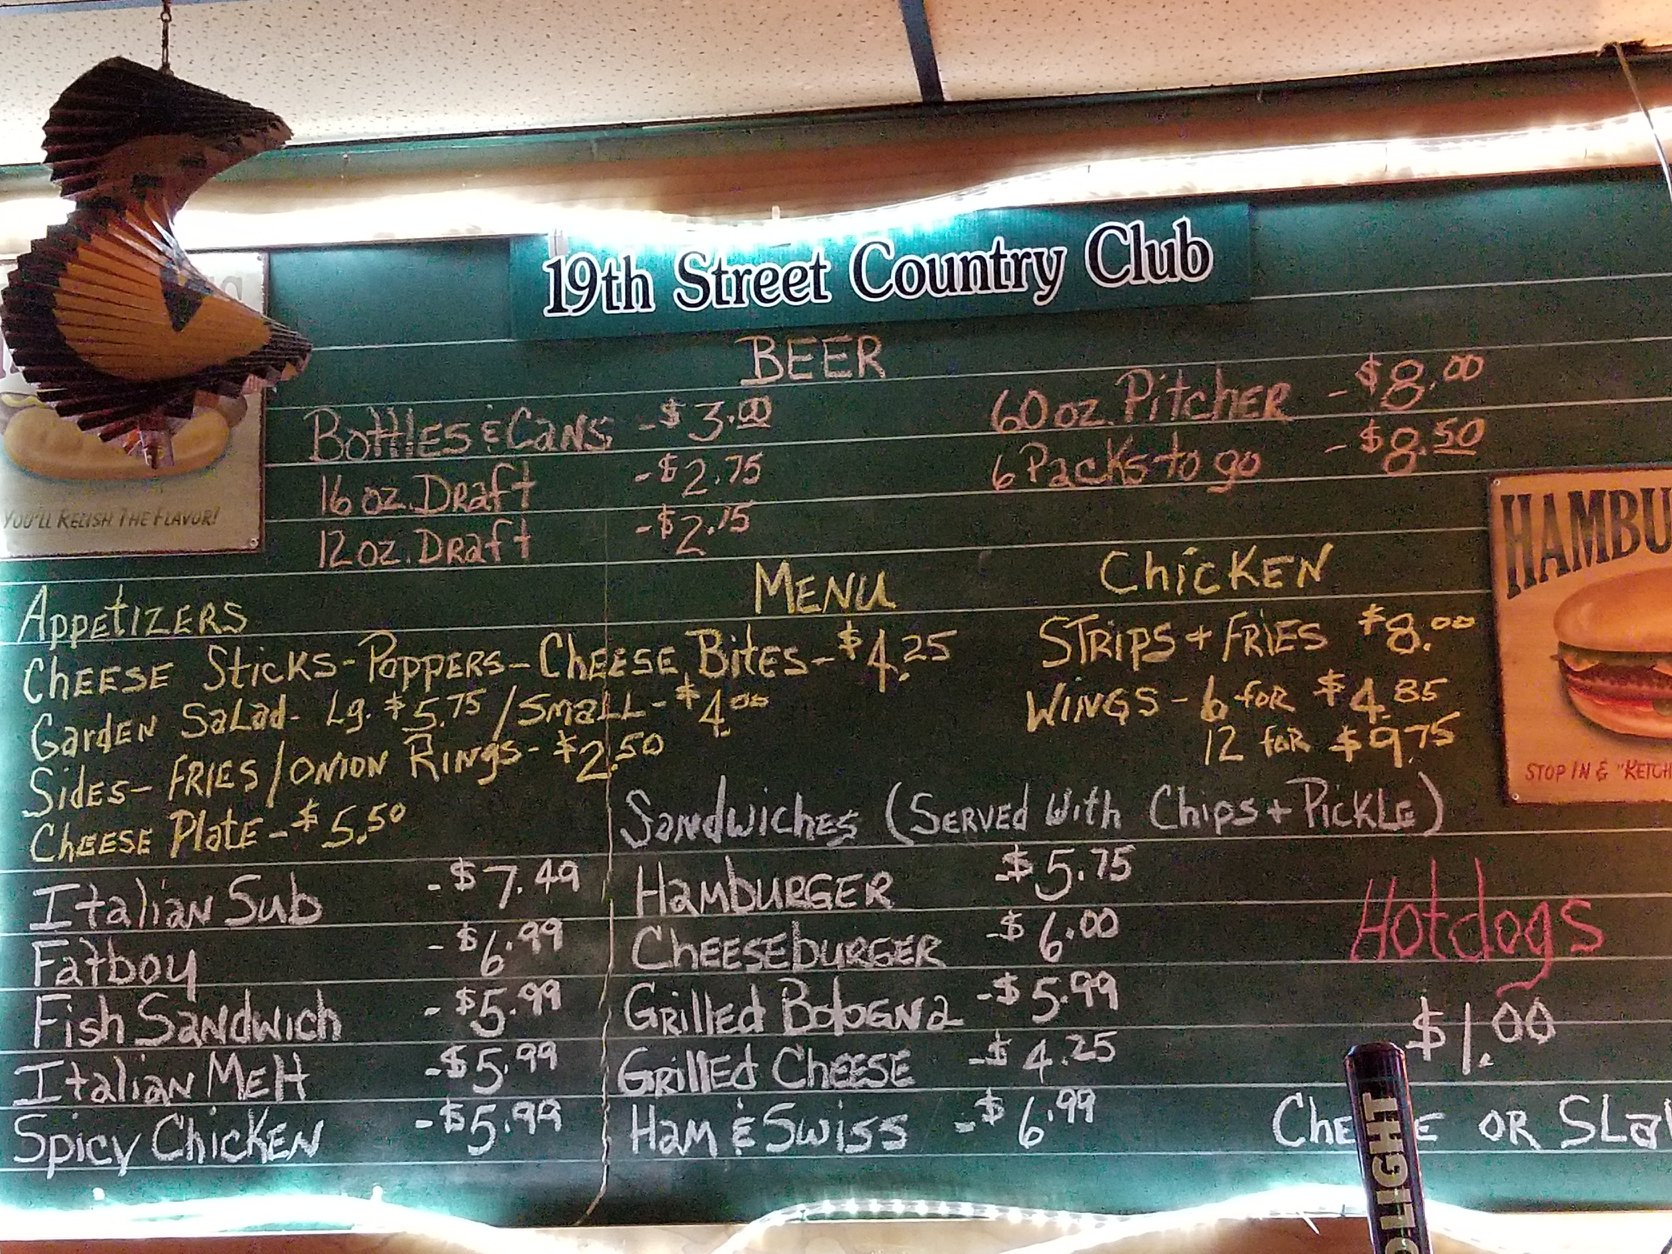 19th Street Country Club
BEER
Bottles & Cans - $3.00
16 oz. Draft - $2.75
12 oz. Draft - $2.15
60 oz. Pitcher - $8.00
6 Packs to go - $8.50
YOU'LL RELISH THE FLAVOR!
HAMBU
STOP IN & "KETCH
MENU
Appetizers
Cheese Sticks - Poppers - Cheese Bites - $4.25
Garden Salad - Lg. $5.75 / Small - $4.00
Sides - Fries / Onion Rings - $2.50
Cheese Plate - $5.50
Chicken
Strips + Fries $8.00
Wings - 6 for $4.85
12 for $9.75
Sandwiches (Served With Chips + Pickle)
Italian Sub - $7.49
Fatboy - $6.99
Fish Sandwich - $5.99
Italian Melt - $5.99
Spicy Chicken - $5.99
Hamburger - $5.75
Cheeseburger - $6.00
Grilled Bologna - $5.99
Grilled Cheese - $4.25
Ham & Swiss - $6.99
Hotdogs
$1.00
or Sla
LIGHT